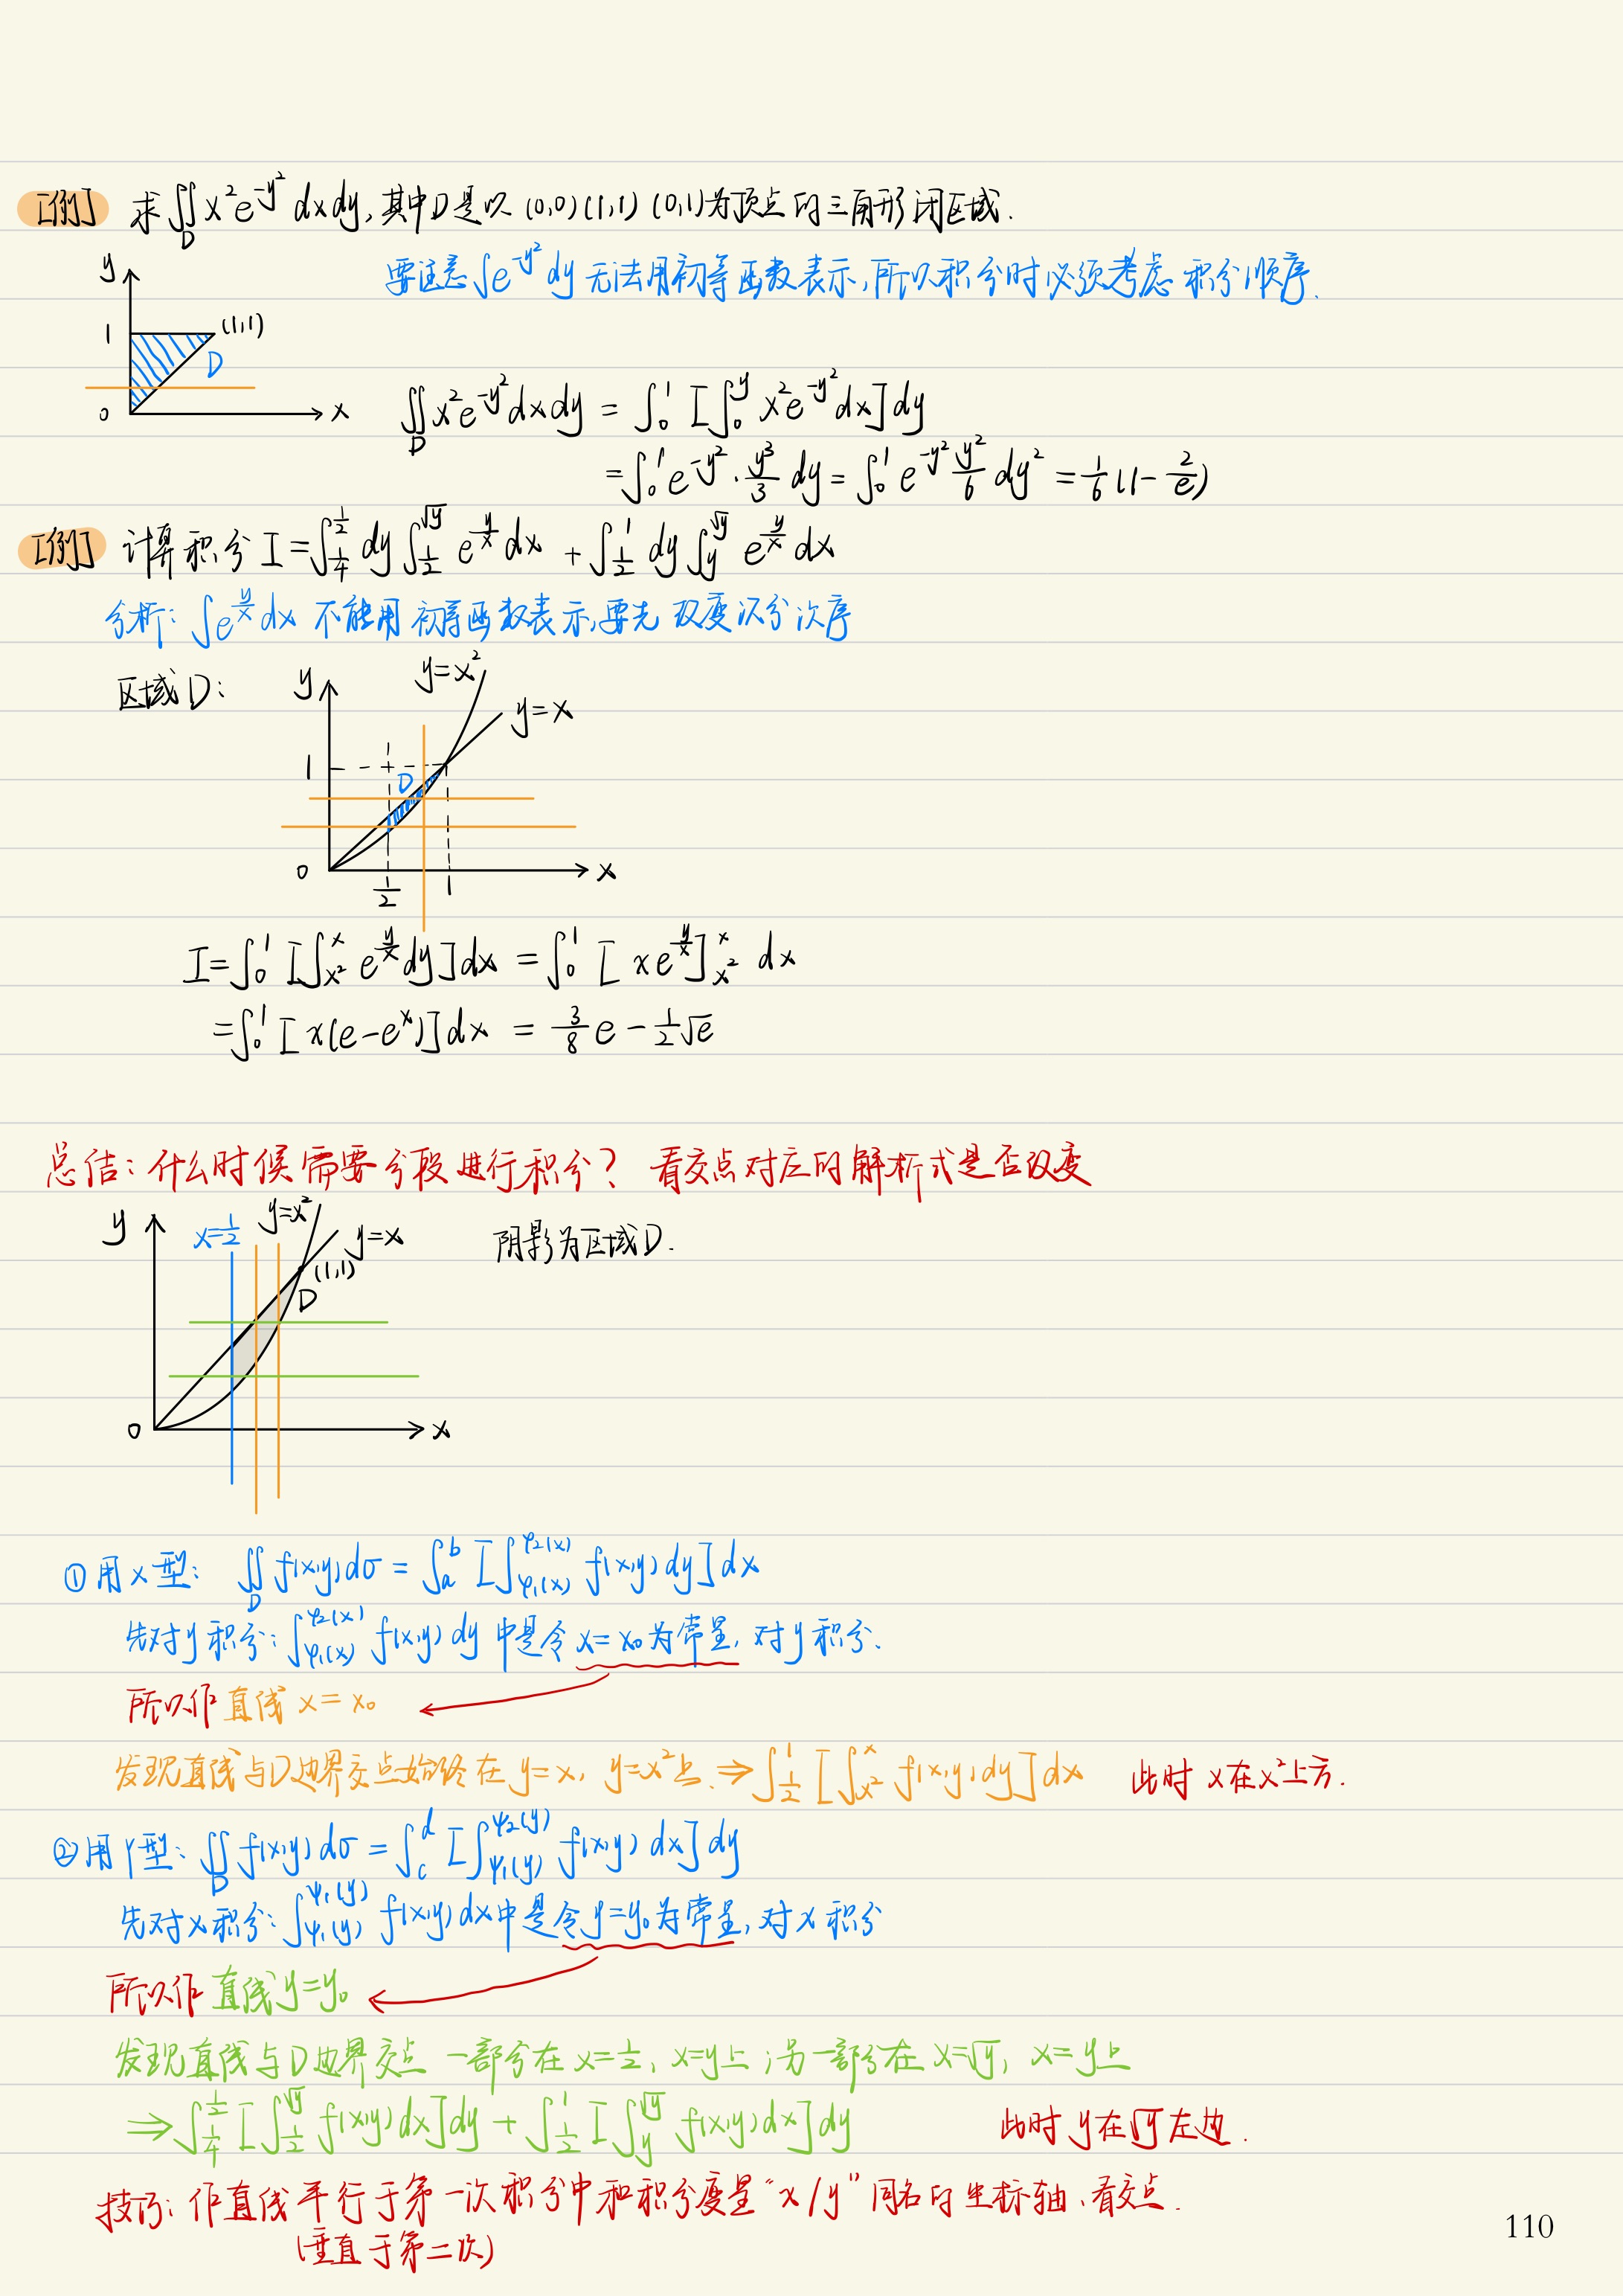 [例] 求∬_D x²e^{-y²}dxdy,其中D是以(0,0)(1,1)(0,1)为顶点的三角形闭区域.
要注意∫e^{-y²}dy无法用初等函数表示,所以积分时必须考虑积分顺序.
y
1
(1,1)
D
0
x
∬_D x²e^{-y²}dxdy = ∫_0^1[∫_0^y x²e^{-y²}dx]dy
=∫_0^1 e^{-y²}·\frac{y³}{3}dy=∫_0^1 e^{-y²}\frac{y²}{6}dy²=\frac{1}{6}(1-\frac{2}{e})
[例] 计算积分 I=∫_{\frac{1}{4}}^{\frac{1}{2}}dy∫_{\frac{1}{2}}^{√y}e^{\frac{y}{x}}dx+∫_{\frac{1}{2}}^1dy∫_y^{√y}e^{\frac{y}{x}}dx
分析:∫e^{\frac{y}{x}}dx不能用初等函数表示,要先改变积分次序
区域D:
y
y=x²
y=x
1
D
0
\frac{1}{2}
1
x
I=∫_0^1[∫_{x²}^x e^{\frac{y}{x}}dy]dx=∫_0^1[xe^{\frac{y}{x}}]_{x²}^x dx
=∫_0^1[x(e-e^x)]dx=\frac{3}{8}e-\frac{1}{2}√e
总结:什么时候需要分段进行积分? 看交点对应的解析式是否改变
y
x=\frac{1}{2}
y=x²
y=x
(1,1)
D
阴影为区域D.
0
x
①用X型: ∬_D f(x,y)dσ=∫_a^b[∫_{φ₁(x)}^{φ₂(x)}f(x,y)dy]dx
先对y积分:∫_{φ₁(x)}^{φ₂(x)}f(x,y)dy中是令x=x₀为常量,对y积分.
所以作直线x=x₀
发现直线与D边界交点始终在y=x,y=x²上.⇒∫_{\frac{1}{2}}^1[∫_{x²}^x f(x,y)dy]dx 此时x在x²上方.
②用Y型:∬_D f(x,y)dσ=∫_c^d[∫_{ψ₁(y)}^{ψ₂(y)}f(x,y)dx]dy
先对x积分:∫_{ψ₁(y)}^{ψ₁(y)}f(x,y)dx中是令y=y₀为常量,对x积分
所以作直线y=y₀
发现直线与D边界交点一部分在x=\frac{1}{2},x=y上;另一部分在x=√y,x=y上
⇒∫_{\frac{1}{4}}^{\frac{1}{2}}[∫_{\frac{1}{2}}^{√y}f(x,y)dx]dy+∫_{\frac{1}{2}}^1[∫_y^{√y}f(x,y)dx]dy 此时y在√y左边.
技巧:作直线平行于第一次积分中和积分变量“x/y”同名的坐标轴,看交点.
(垂直于第二次)
110